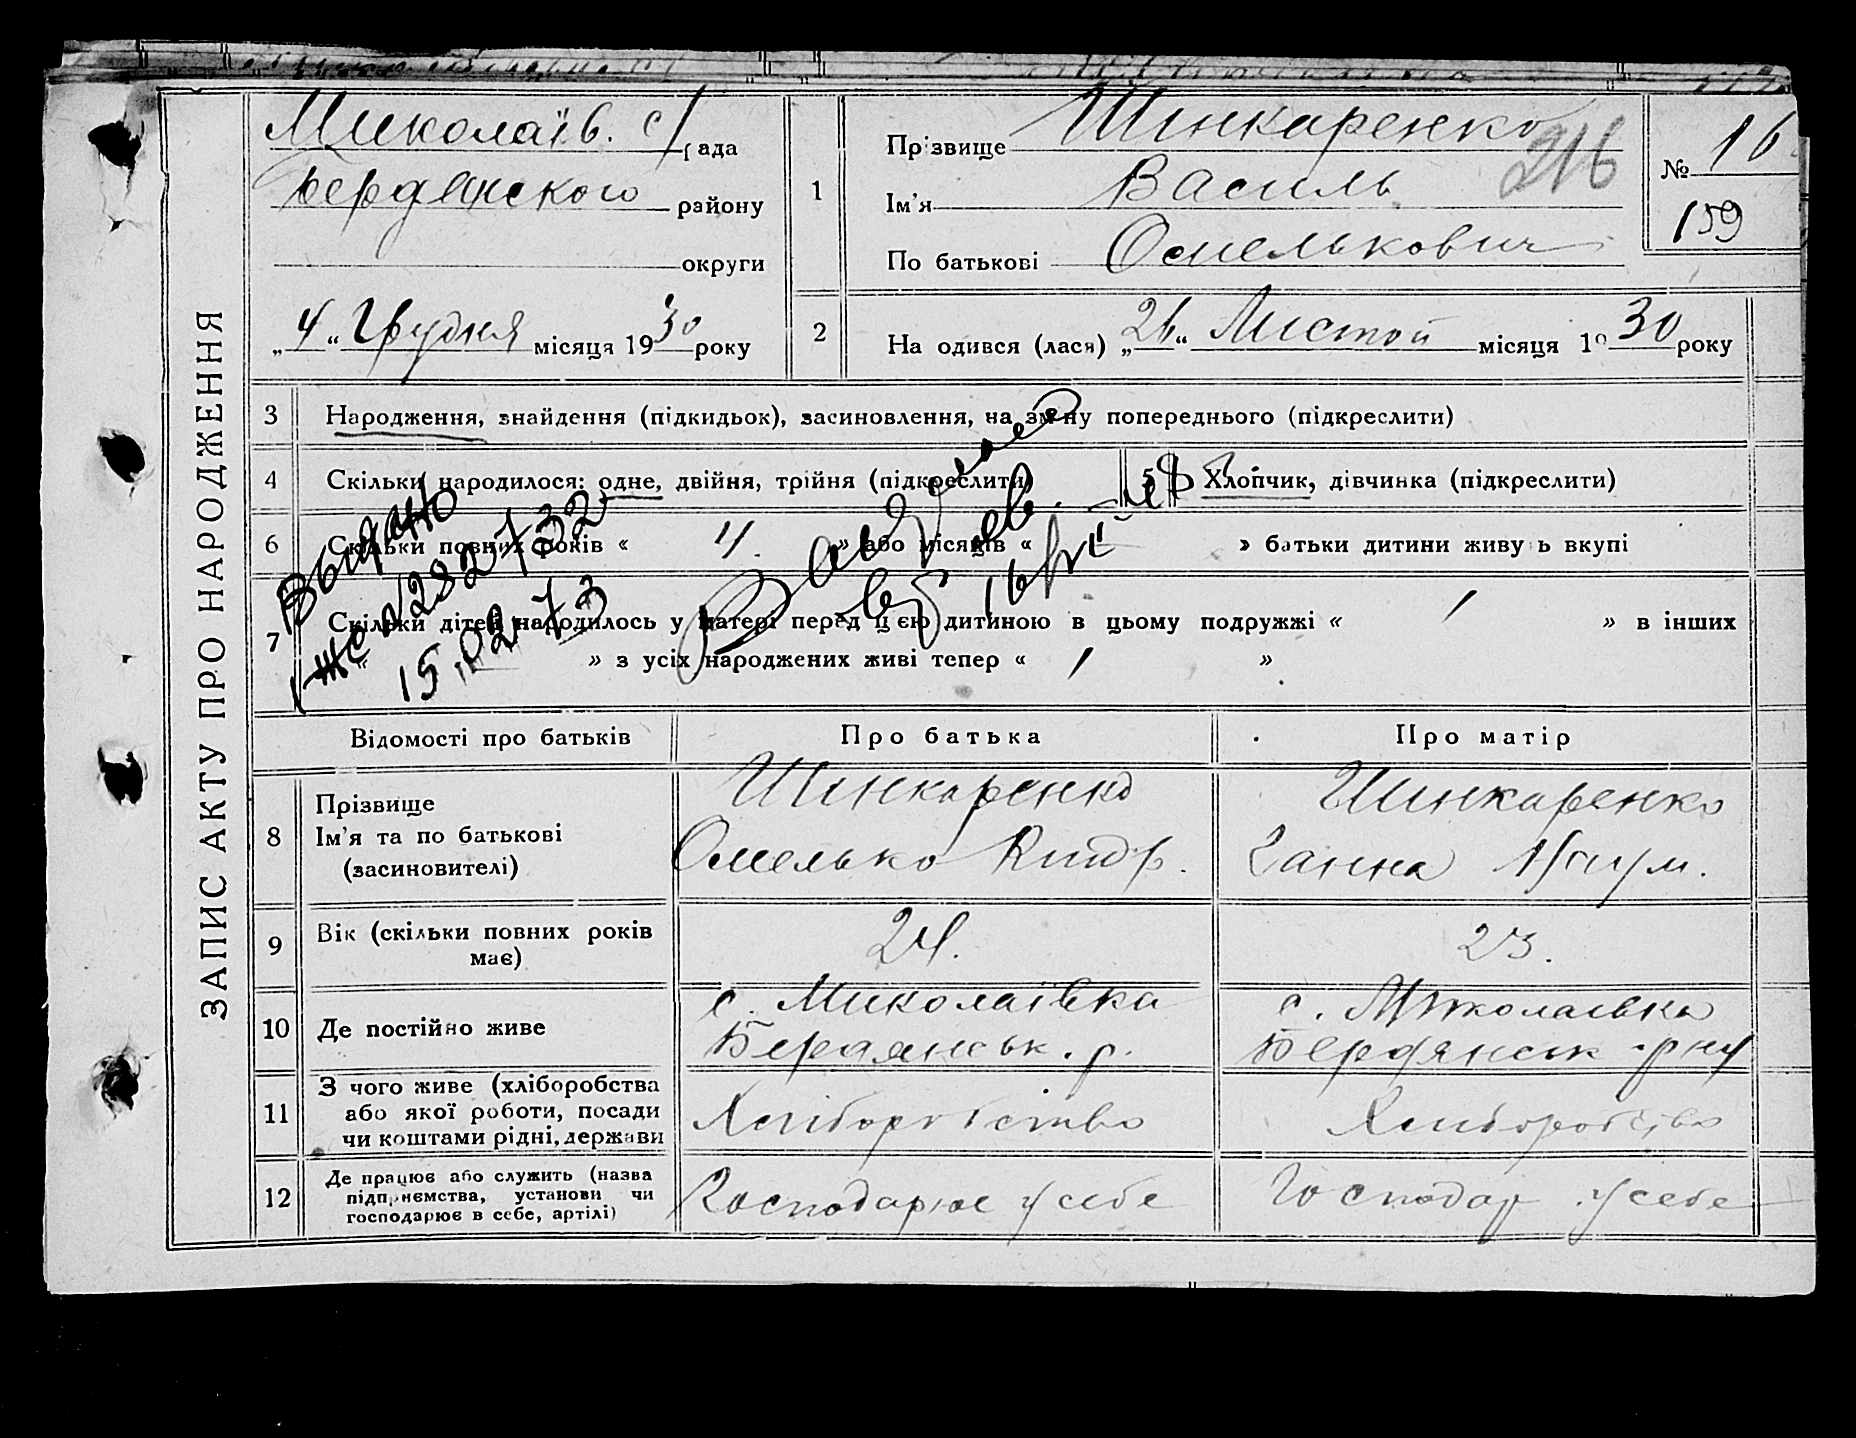 ЗАПИС АКТУ ПРО НАРОДЖЕННЯ
Миколаїв. с/рада
Бердянского району
округи
„4“ Грудня місяця 1930 року
1
Прізвище Шинкаренко
Ім'я Василь
По батькові Омелькович
216
№ 16
159
2
На одився (лася) „26“ Листоп місяця 1930 року
3 Народження, знайдення (підкидьок), засиновлення, на зміну попереднього (підкреслити)
4 Скільки народилося: одне, двійня, трійня (підкреслити)
5 Хлопчик, дівчинка (підкреслити)
6 Скільки повних років « 4. » або місяців « » батьки дитини живуть вкупі
7 Скільки дітей народилось у матері перед цією дитиною в цьому подружжі « 1 » в інших
« » з усіх народжених живі тепер « 1 »
Выдано
282732
15.02.73
Відомості про батьків Про батька Про матір
8 Прізвище
Ім'я та по батькові
(засиновителі)
Шинкаренко
Омелько
Шинкаренко
Ганна
9 Вік (скільки повних років має)
24.
23.
10 Де постійно живе
с. Миколаївка
Бердянськ. р.
с. Миколаевка
Бердянськ. р-ну
11 З чого живе (хліборобства
або якої роботи, посади
чи коштами рідні, держави
Хліборобство
Хліборобство
12 Де працює або служить (назва
підприємства, установи чи
господарює в себе, артілі)
Господарює у себе
Господар. у себе